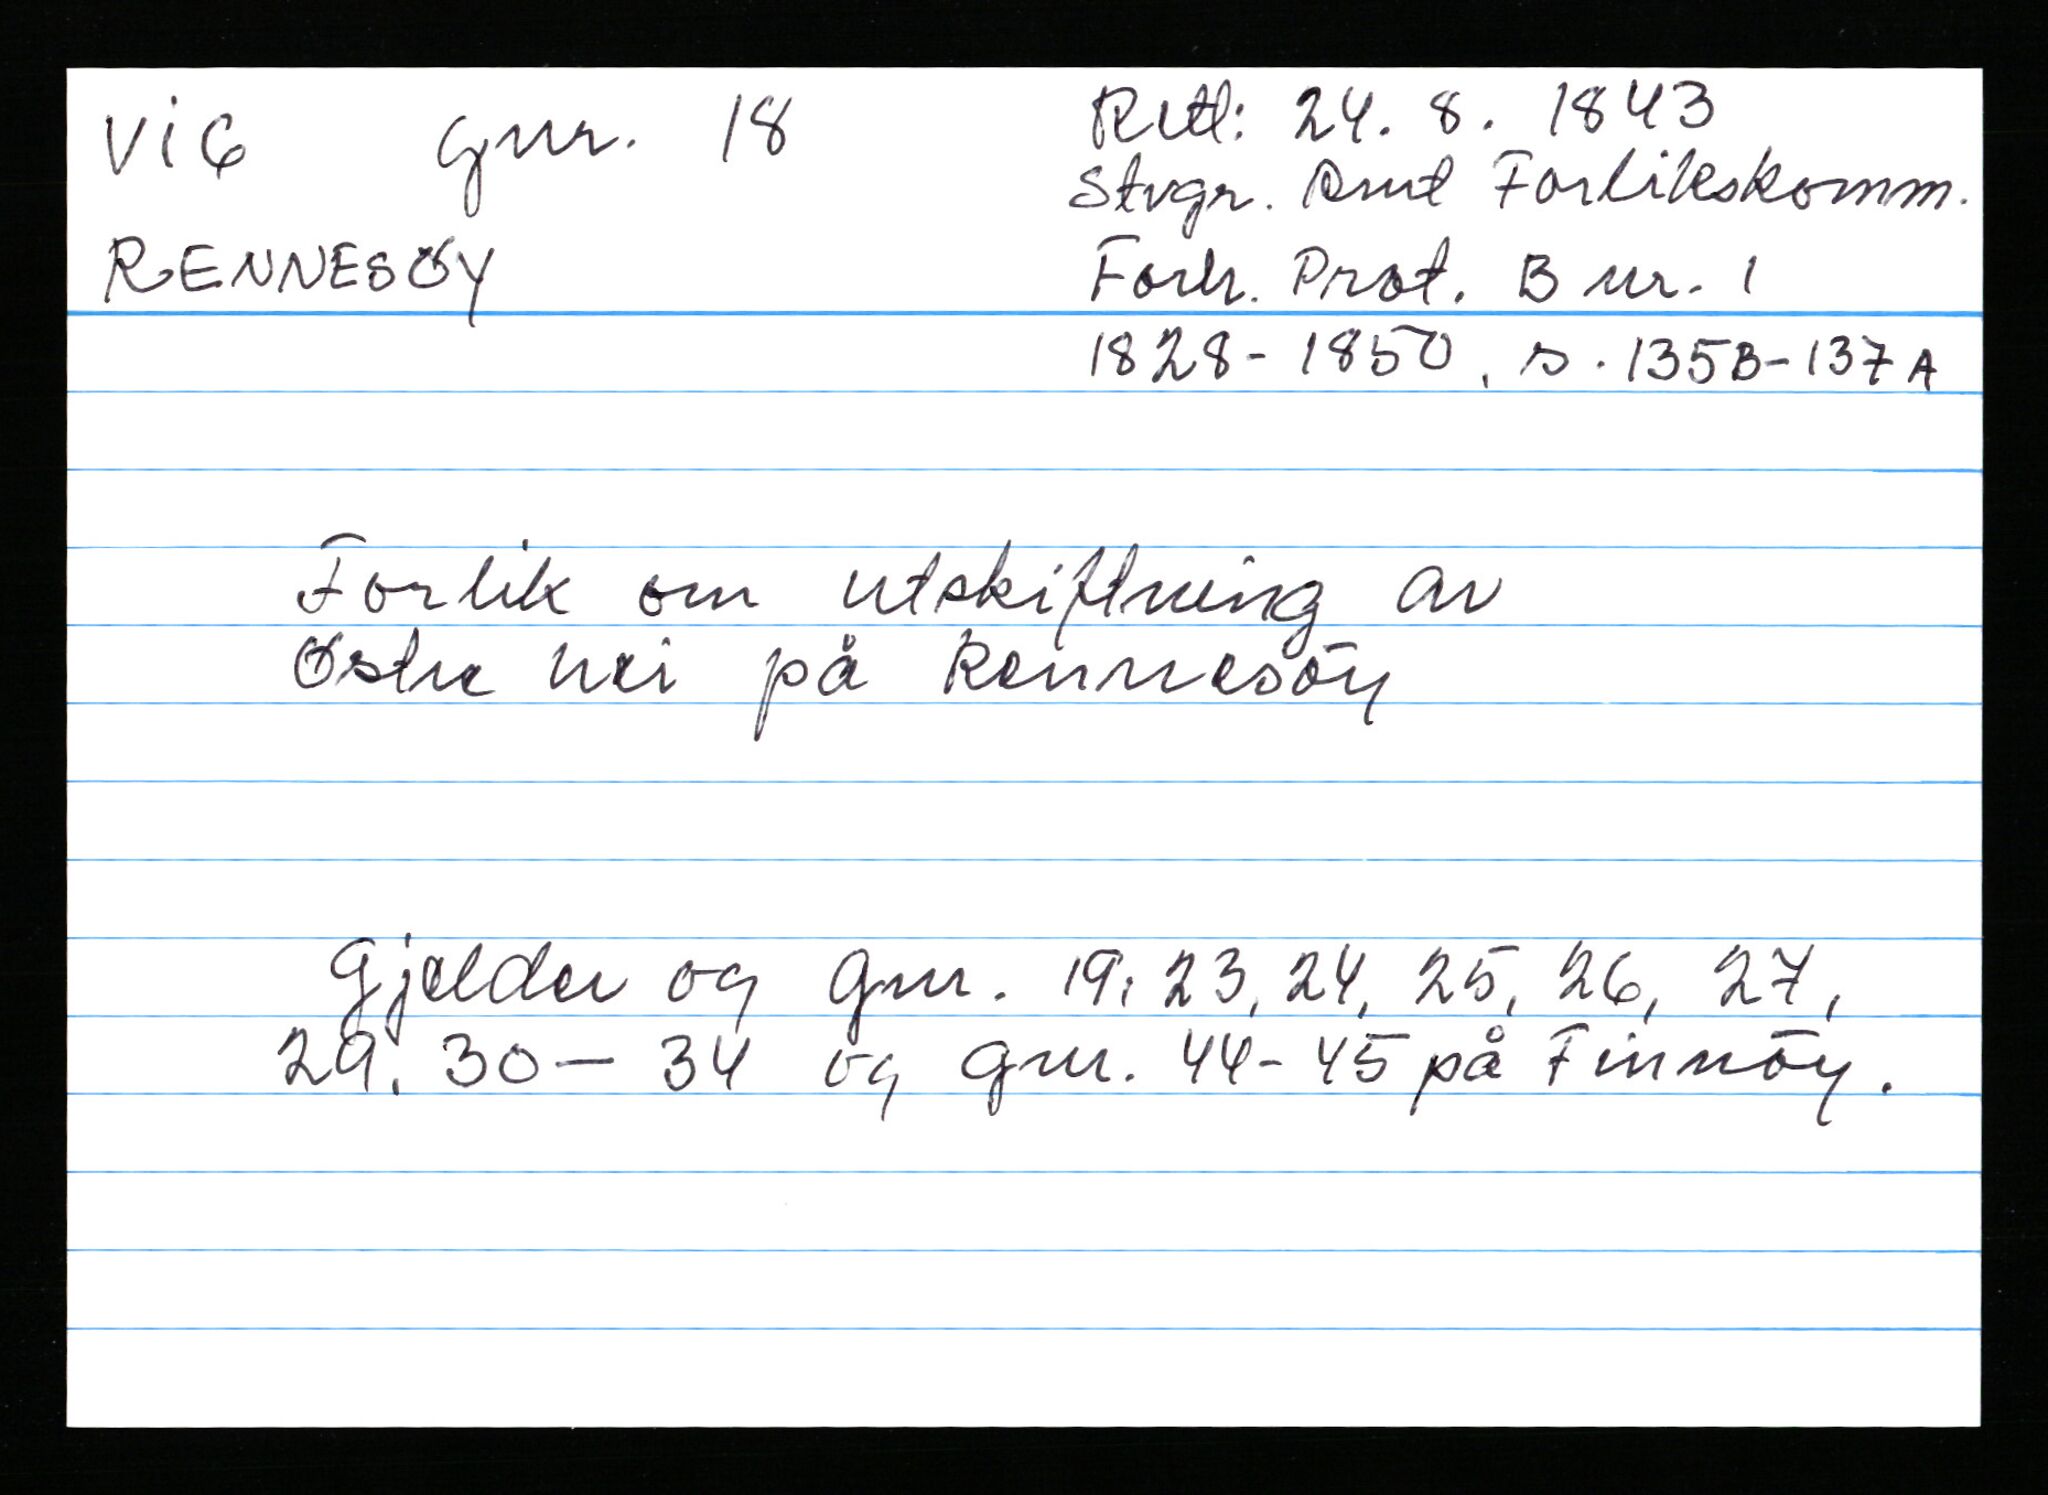 VIG gnr. 18
RENNESÖY
Rettl: 24. 8. 1843
Stvgr. Amt Forlikskomm.
Forh. Prot. B nr. 1
1828-1850, s. 135B-137A
Forlik om utskiftning av
Østre hei på Rennesöy
Gjelder og gnr. 19, 23, 24, 25, 26, 27,
29, 30-34 og gnr. 44-45 på Finnöy.